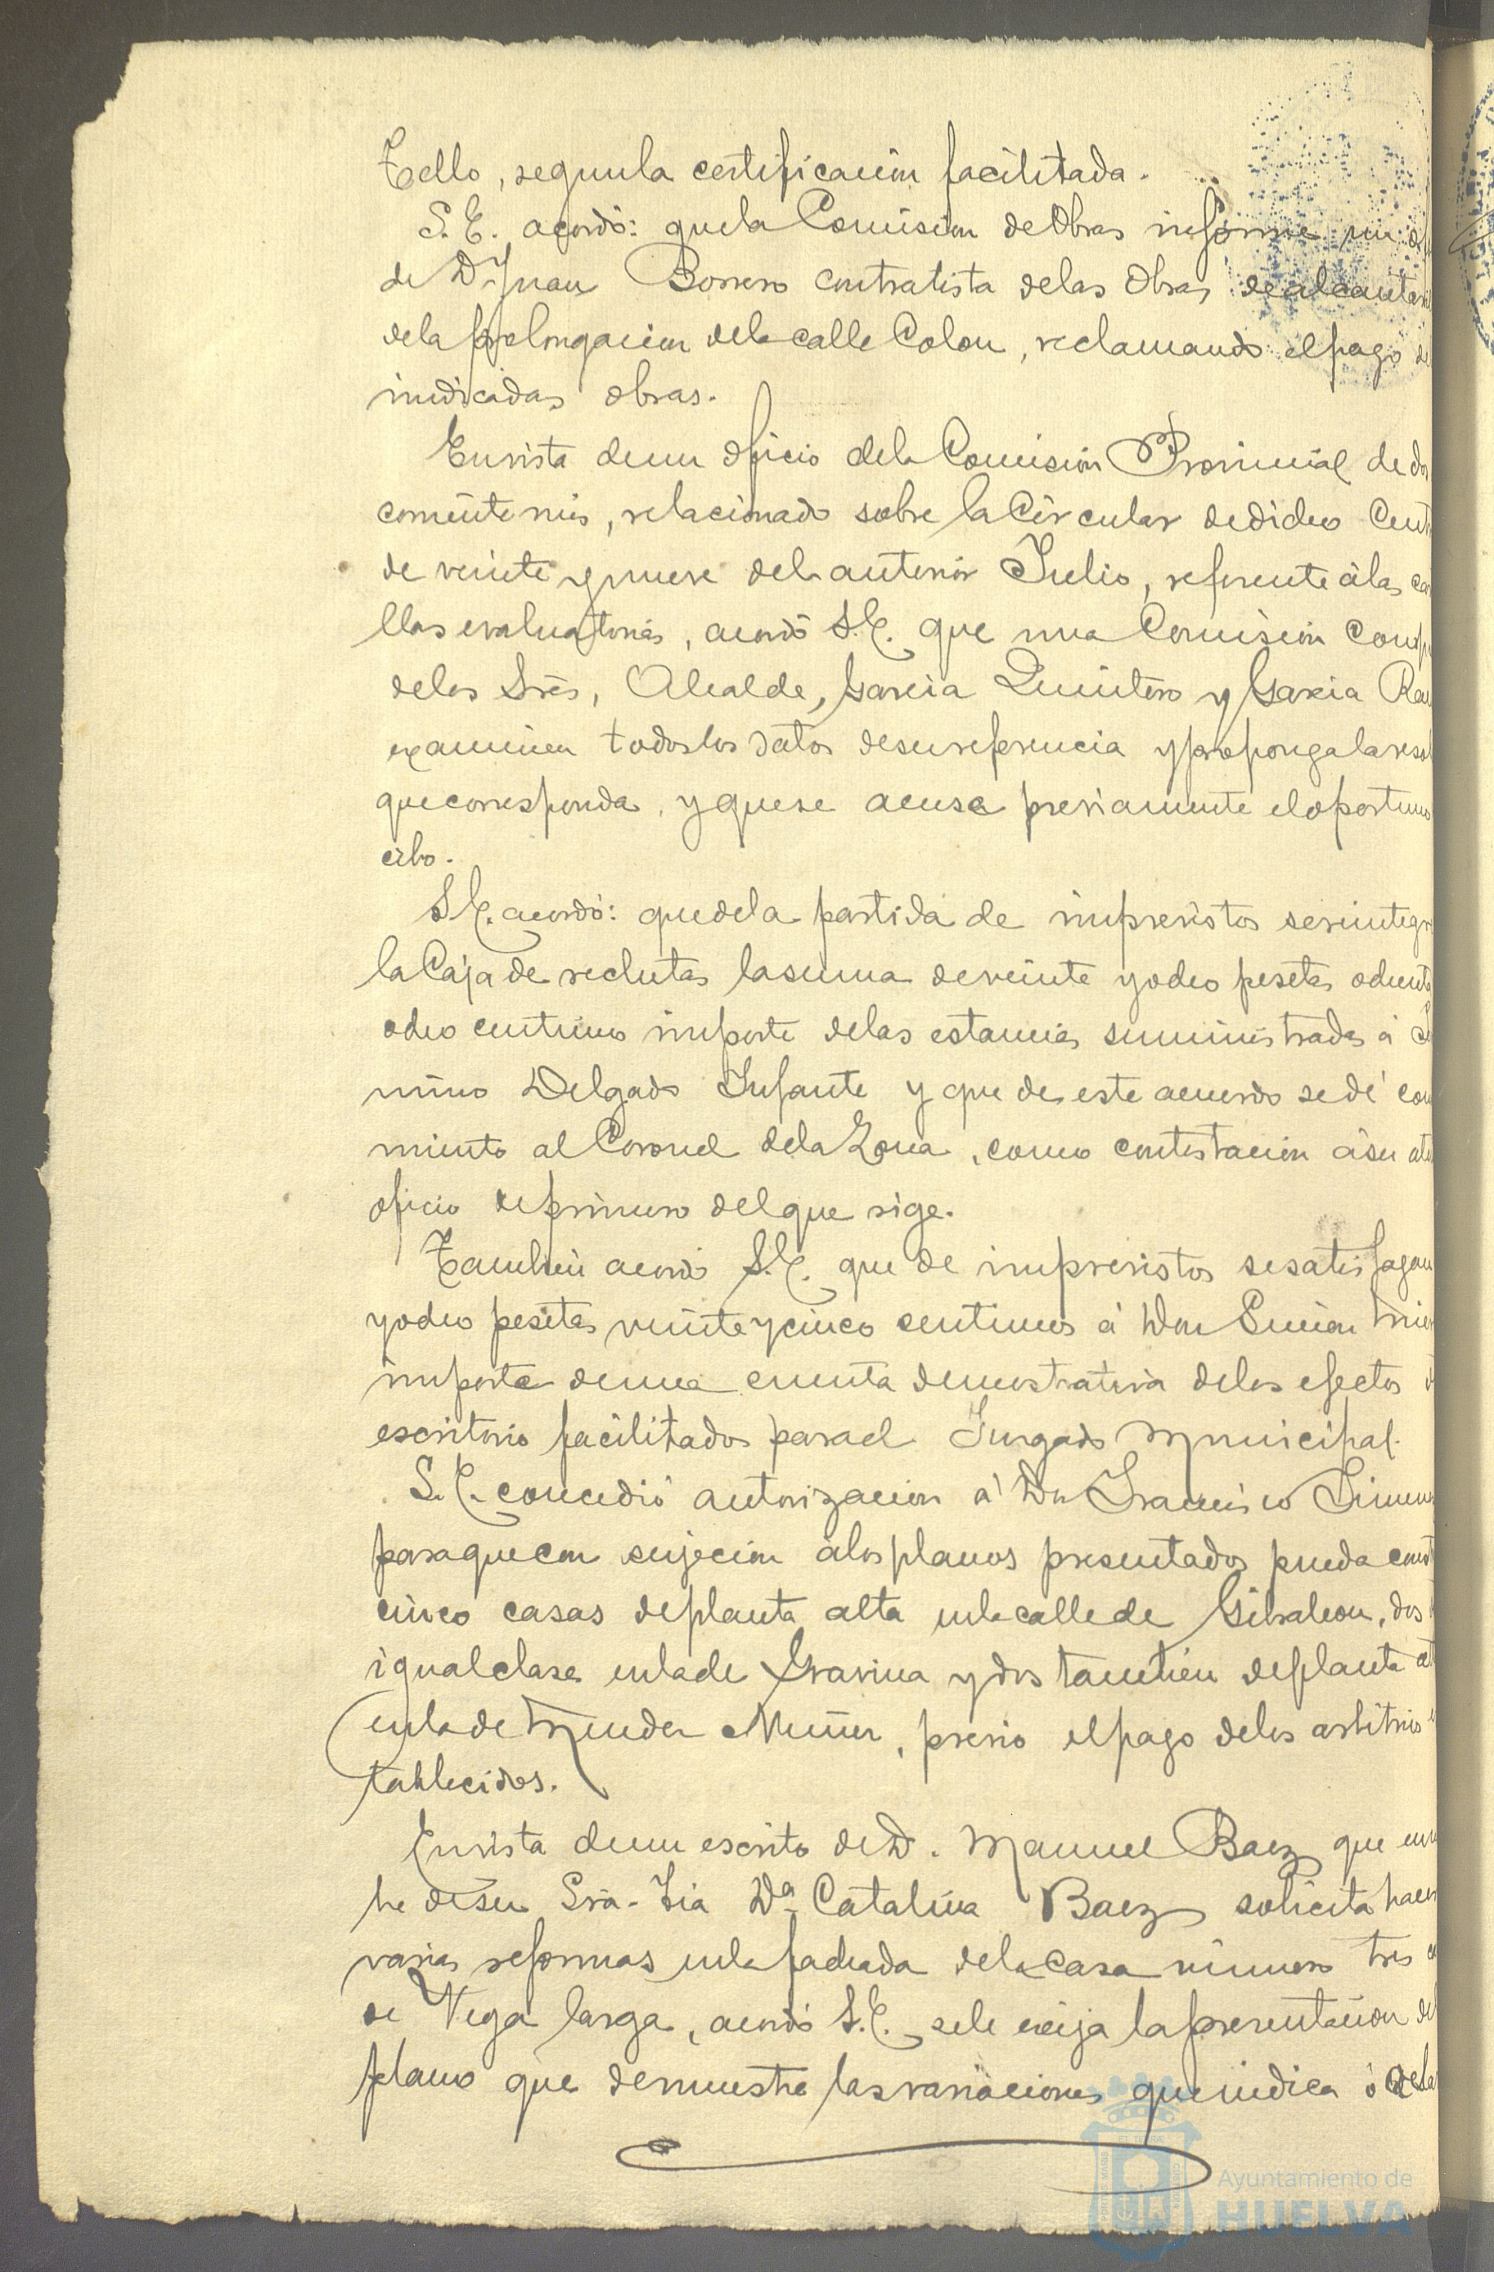 Tello, segun la certificación facilitada.
S. E. acordó: que la Comisión de Obras informe un
de D. Juan Borrero contratista de las Obras de alcantar
de la prolongación de la calle Colon, reclamando el pago de
indicadas obras.
En vista de un oficio de la Comisión Provincial de dos
corriente mes, relacionado sobre la Circular de dicho Cent
de veinte y nueve del anterior Julio, referente á las car
llas evaluatorias, acordó S. E. que una Comisión comp
de los Sres, Alcalde, Garcia Quintero y Garcia Ra
examinen todos los datos de su referencia y proponga la resol
que corresponda, y que se acuse previamente el oportuno
cibo.
S. E. acordó: que de la partida de imprevistos se reintegr
la Caja de reclutas la suma de veinte y ocho pesetas ochenta
ocho centimos importe de las estancias suministradas á
mino Delgado Infante y que de este acuerdo se dé con
miento al Coronel de la Zona, como contestación á su at
oficio de primero del que rige.
Tambien acordó S. E. que de imprevistos se satisfagan
y ocho pesetas veinte y cinco centimos á Don
importe de una cuenta demostrativa de los efectos d
escritorio facilitados para el Jurgado Municipal.
S. E. concedió autorizacion á Don Francisco Jimen
para que con sujeción á los planos presentados pueda const
cinco casas de planta alta en la calle de Gibraleon, dos
igual clase en la de Gravina y dos tambien de planta al
en la de Mender Nuñer, previo el pago de los arbitrios
tablecidos.
En vista de un escrito de D. Manuel Baez que en
bre de su Sra. Tia Dª Catalina Baez solicita hacer
varias reformas en la fachada de la casa número tres
de Vega larga, acordó S. E. se le exija la presentación del
plano que demuestre las variaciones que indica ó
Ayuntamiento de
HUELVA